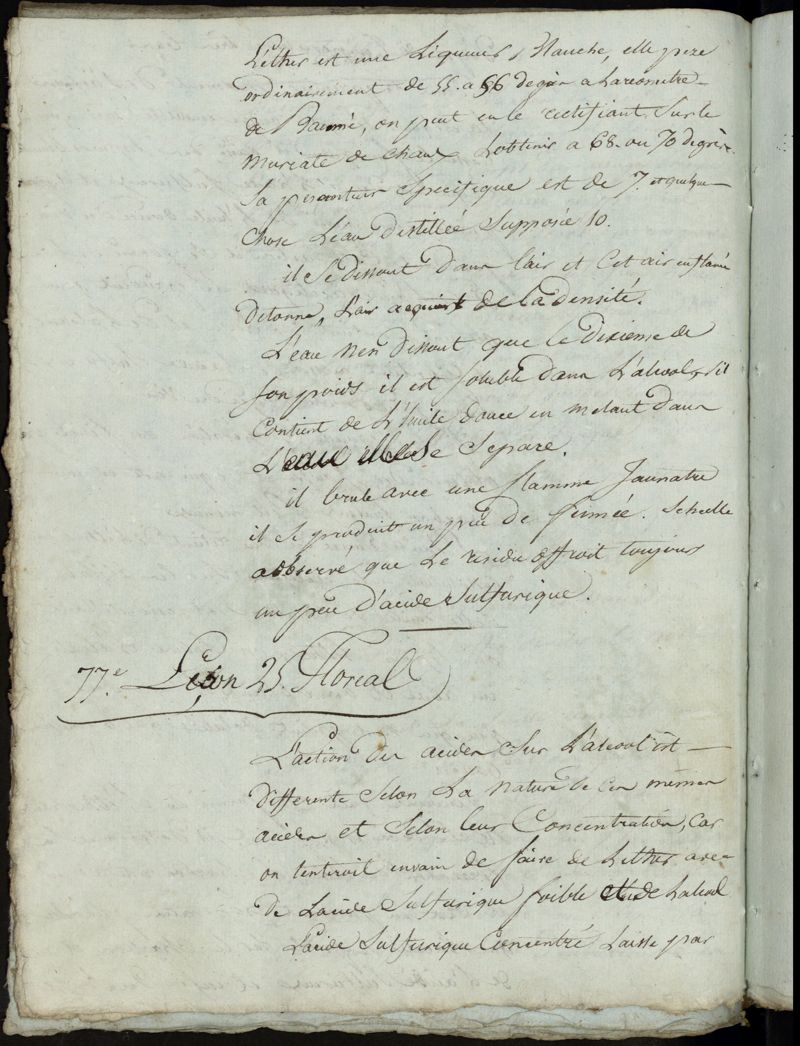 L'ether est une Liqueur blanche, elle pese
ordinairement de 55. a 56 degrés a Lareometre
de Baumé, on peut en le rectifiant sur le
muriate de chaux Lobtenir a 68. ou 70 degrés
Sa pesenteur Specifique est de 7. et quelque
chose L'eau distilleé Supposée 10.
il se dissout dans lair et Cet air enflamé
detonne, L'air acquiert de la densité.
L'eau n'en dissout que le dixieme de
son poids il est soluble dans L'alcool, s'il
Contient de L'huile douce en melant dans
L'eau elle se Separe.
il brule avec une flamme Jaunatre
il se produit un peu de fumée. Scheelle
a observé que Le residu offroit toujours
un peu d'acide Sulfurique.
77.e Leçon 25. Floreal
L'action des acides Sur L'alcool est
differente Selon La nature de ces mêmes
acides et Selon leur Concentration, Car
on tenteroit envain de faire de Lether avec
de Lacide Sulfurique foible et de Lalcool
Lacide Sulfurique Concentré Laisse par